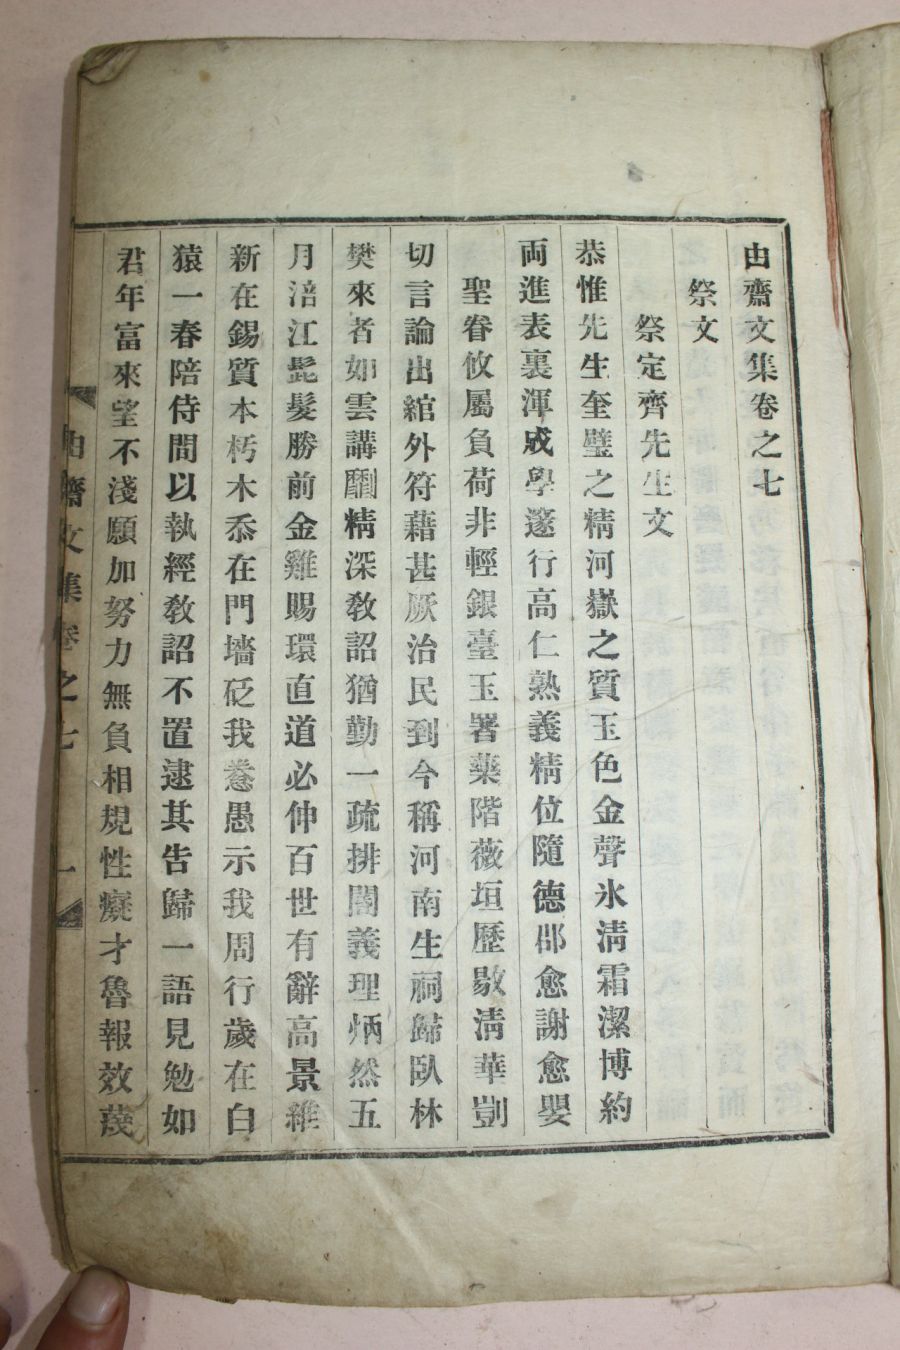 由齋文集卷之七
祭文
祭定齊先生文
恭惟先生奎璧之精河嶽之質玉色金聲氷淸霜潔博約
両進表裏渾成學邃行高仁熟義精位隨德卲愈謝愈嬰
聖眷攸屬負荷非輕銀臺玉署藥階薇垣歷敭淸華剴
切言論出綰外符藉甚厥治民到今稱河南生祠歸臥林
樊來者如雲講劘精深敎詔猶勤一疏排闇義理炳然五
月涪江髭髮勝前金雞賜環直道必伸百世有辭高景維
新在錫質本朽木忝在門墻砭我惷愚示我周行歲在白
猿一春陪侍間以執經敎詔不置逮其告歸一語見勉如
君年富來望不淺願加努力無負相規性癡才魯報效蔑
由齋文集卷之七 一